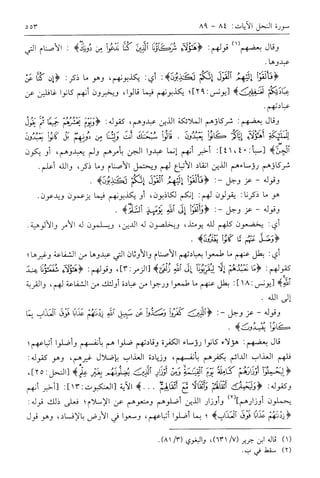 سورة النحل الآيات: ٨٤ - ٨٩ ٥٥٣
وقال بعضهم(١) قولهم: ﴿هَٰٓؤُلَآءِ شُرَكَآؤُنَا ٱلَّذِينَ كُنَّا نَدْعُوا۟ مِن دُونِكَ﴾: الأصنام التي
عبدوها.
﴿فَأَلْقَوْا۟ إِلَيْهِمُ ٱلْقَوْلَ إِنَّكُمْ لَكَٰذِبُونَ﴾: أي: يكذبونهم، وهو ما ذكر: ﴿إِن كُنَّا عَنْ
عِبَادَتِكُمْ لَغَٰفِلِينَ﴾ [يونس: ٢٩]؛ يكذبونهم فيما قالوا، ويخبرون أنهم كانوا غافلين عن
عبادتهم.
وقال بعضهم: شركاؤهم الملائكة الذين عبدوهم، كقوله: ﴿وَيَوْمَ يَحْشُرُهُمْ جَمِيعًا ثُمَّ يَقُولُ
لِلْمَلَٰٓئِكَةِ أَهَٰٓؤُلَآءِ إِيَّاكُمْ كَانُوا۟ يَعْبُدُونَ . قَالُوا۟ سُبْحَٰنَكَ أَنتَ وَلِيُّنَا مِن دُونِهِم بَلْ كَانُوا۟ يَعْبُدُونَ
ٱلْجِنَّ﴾ [سبأ: ٤٠، ٤١]: أخبر أنهم إنما عبدوا الجن بأمرهم ولم يعبدوهم، أو يكون
شركاؤهم رؤساءهم الذين انقاد الأتباع لهم ويحتمل الأصنام وما ذكر، والله أعلم.
وقوله - عز وجل -: ﴿فَأَلْقَوْا۟ إِلَيْهِمُ ٱلْقَوْلَ إِنَّكُمْ لَكَٰذِبُونَ﴾.
هو ما ذكرنا: يقولون لهم: إنكم لكاذبون، أو يكذبونهم فيما يزعمون ويدعون.
وقوله - عز وجل -: ﴿وَأَلْقَوْا۟ إِلَى ٱللَّهِ يَوْمَئِذٍ ٱلسَّلَمَ﴾.
أي: يخضعون كلهم لله يومئذ، ويخلصون له الدين، ويسلمون له الأمر والألوهية.
﴿وَضَلَّ عَنْهُم مَّا كَانُوا۟ يَفْتَرُونَ﴾.
أي: بطل عنهم ما طمعوا بعبادتهم الأصنام والأوثان التي عبدوها من الشفاعة وغيرها؛
كقولهم: ﴿مَا نَعْبُدُهُمْ إِلَّا لِيُقَرِّبُونَآ إِلَى ٱللَّهِ زُلْفَىٰٓ﴾ [الزمر: ٣]، وقولهم: ﴿هَٰٓؤُلَآءِ شُفَعَٰٓؤُنَا عِندَ
ٱللَّهِ﴾ [يونس: ١٨]: بطل عنهم ما طمعوا ورجوا من عبادة أولئك من الشفاعة لهم، والقربة
إلى الله.
وقوله - عز وجل -: ﴿ٱلَّذِينَ كَفَرُوا۟ وَصَدُّوا۟ عَن سَبِيلِ ٱللَّهِ زِدْنَٰهُمْ عَذَابًا فَوْقَ ٱلْعَذَابِ بِمَا
كَانُوا۟ يُفْسِدُونَ﴾.
قال بعضهم: هؤلاء كانوا رؤساء الكفرة وقادتهم ضلوا هم بأنفسهم وأضلوا أتباعهم؛
فلهم العذاب الدائم بكفرهم بأنفسهم، وزيادة العذاب بإضلال غيرهم، وهو كقوله:
﴿لِيَحْمِلُوٓا۟ أَوْزَارَهُمْ كَامِلَةً يَوْمَ ٱلْقِيَٰمَةِ وَمِنْ أَوْزَارِ ٱلَّذِينَ يُضِلُّونَهُم بِغَيْرِ عِلْمٍ﴾ [النحل: ٢٥]،
وكقوله: ﴿وَلَيَحْمِلُنَّ أَثْقَالَهُمْ وَأَثْقَالًا مَّعَ أَثْقَالِهِمْ...﴾ الآية [العنكبوت: ١٣]: [أخبر أنهم
يحملون أوزارهم](٢) وأوزار الذين أضلوهم ومنعوهم عن الإسلام؛ فعلى ذلك قوله:
﴿زِدْنَٰهُمْ عَذَابًا فَوْقَ ٱلْعَذَابِ﴾؛ بما أضلوا أتباعهم، وسعوا في الأرض بالإفساد، وهو قول
(١) قاله ابن جرير (٧/ ٦٣١)، والبغوي (٣/ ٨١).
(٢) سقط في ب.